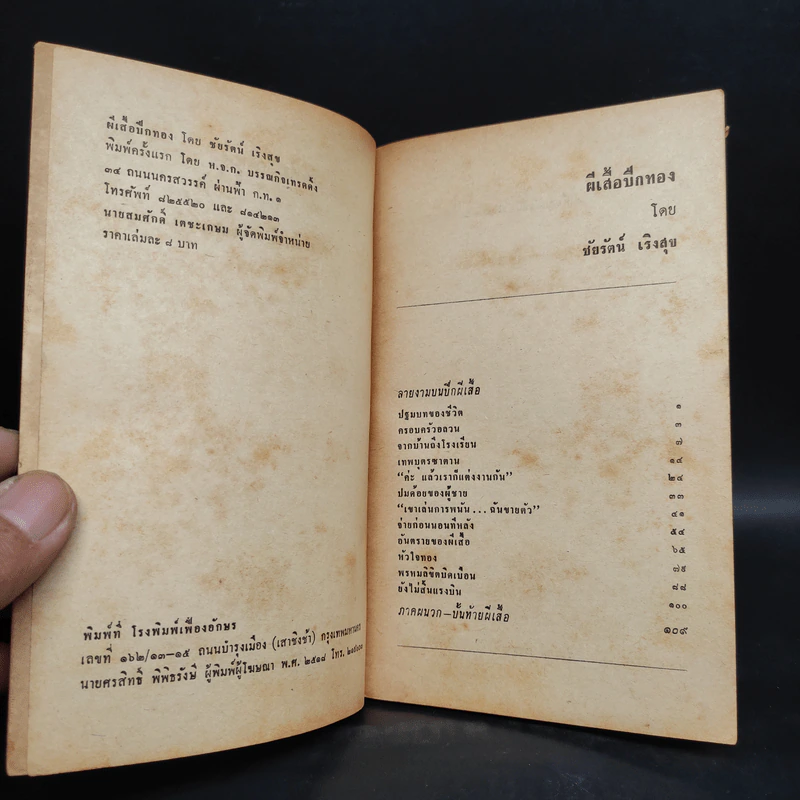 ผีเสื้อปีกทอง โดย ชัยรัตน์ เริงสุข
พิมพ์ครั้งแรก โดย ห.จ.ก. บรรณกิจเทรดดิ้ง
๓๔ ถนนนครสวรรค์ ผ่านฟ้า ก.ท. ๑
โทรศัพท์ ๘๒๕๕๒๐ และ ๘๑๔๒๑๓
นายสมศักดิ์ เตชะเกษม ผู้จัดพิมพ์จำหน่าย
ราคาเล่มละ ๘ บาท
พิมพ์ที่ โรงพิมพ์เฟื่องอักษร
เลขที่ ๑๖๒/๑๓–๑๕ ถนนบำรุงเมือง (เสาชิงช้า) กรุงเทพมหานคร
นายศรสิทธิ์ พิพิธรังษี ผู้พิมพ์ผู้โฆษณา พ.ศ. ๒๕๑๘ โทร.
ผีเสื้อปีกทอง
โดย
ชัยรัตน์ เริงสุข
ลายงามบนปีกผีเสื้อ
ปฐมบทของชีวิต ๑
ครอบครัวอลวน ๓
จากบ้านถึงโรงเรียน ๗
เทพบุตรซาตาน ๑๔
“ค่ะ แล้วเราก็แต่งงานกัน” ๒๔
ปมด้อยของผู้ชาย ๓๓
“เขาเล่นการพนัน...ฉันขายตัว” ๔๑
จ่ายก่อนนอนทีหลัง ๕๔
อันตรายของผีเสื้อ ๖๕
หัวใจทอง ๗๙
พรหมลิขิตบิดเบือน ๘๘
ยังไม่สิ้นแรงบิน ๑๐๐
ภาคผนวก–บั้นท้ายผีเสื้อ ๑๐๙